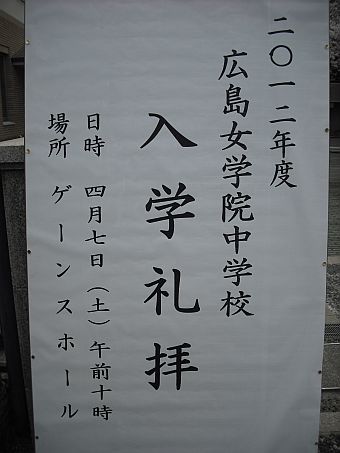 二〇一二年度
広島女学院中学校
入学礼拝
日時 四月七日(土)午前十時
場所 ゲーンスホール